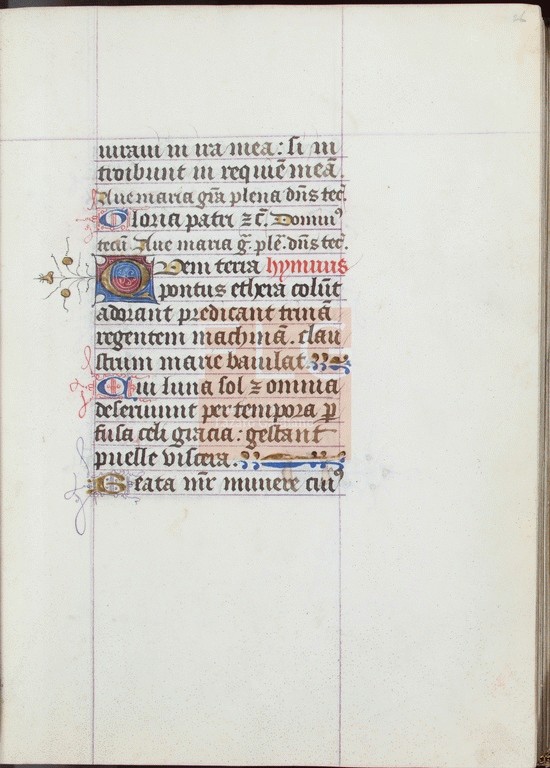 26
iuraui in ira mea: si in
troibunt in requiē meā.
Aue maria grā plena dn̄s tec.
Gloria patri ⁊ c̄. Dominꝰ
tecū Aue maria ḡ. plē. dn̄s tec.
Quem terra hymnus
pontus ethera colūt
adorant predicant trinā
regentem machinā. clau
strum marie baiulat.
Cui luna sol ⁊ omnia
deseruiunt per tempora ꝑ
fusa celi gracia: gestant
puelle viscera.
Beata mr̄ munere cuiꝰ